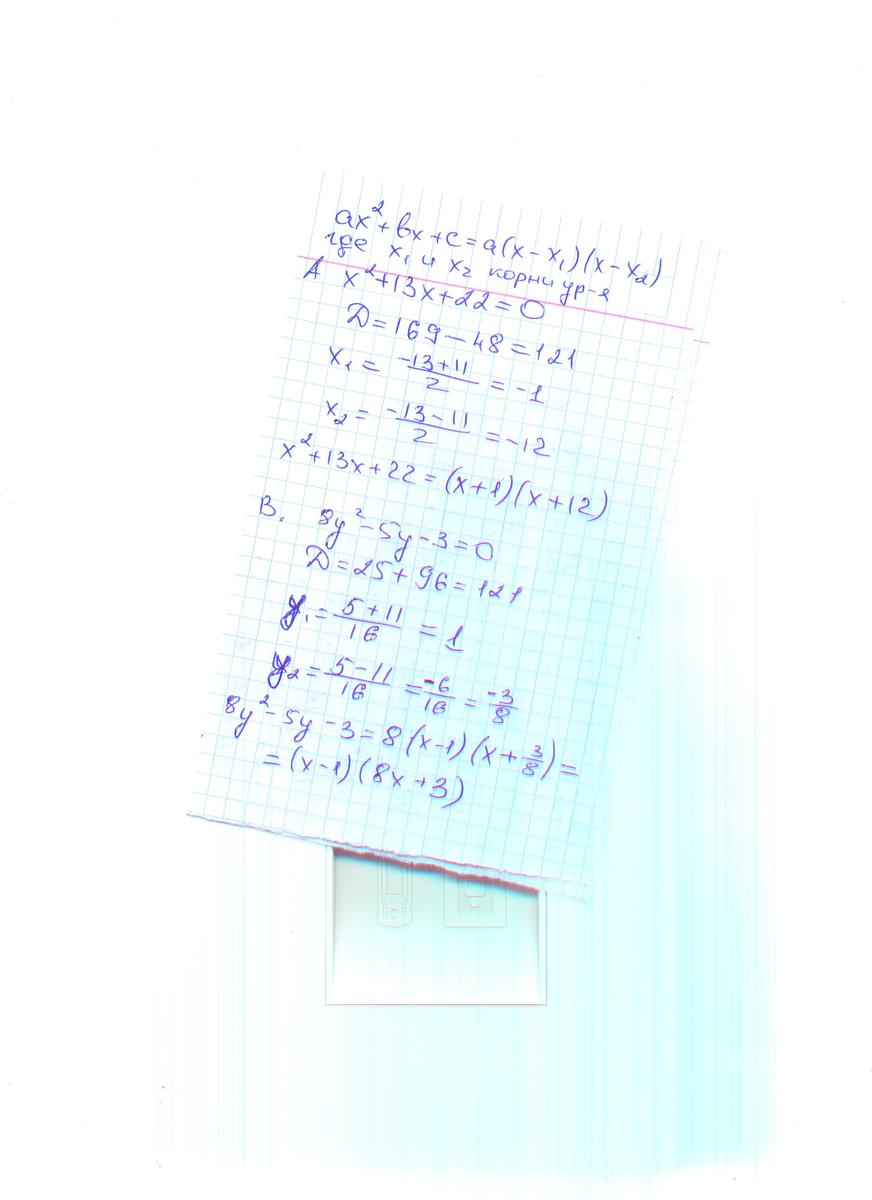 ax² + bx + c = a(x - x₁)(x - x₂)
где x₁ и x₂ корни ур-я
A x² + 13x + 22 = 0
D = 169 - 48 = 121
x₁ = (-13+11)/2 = -1
x₂ = (-13-11)/2 = -12
x² + 13x + 22 = (x+1)(x+12)
B. 8y² - 5y - 3 = 0
D = 25 + 96 = 121
y₁ = (5+11)/16 = 1
y₂ = (5-11)/16 = -6/16 = -3/8
8y² - 5y - 3 = 8(x-1)(x+3/8) =
= (x-1)(8x+3)